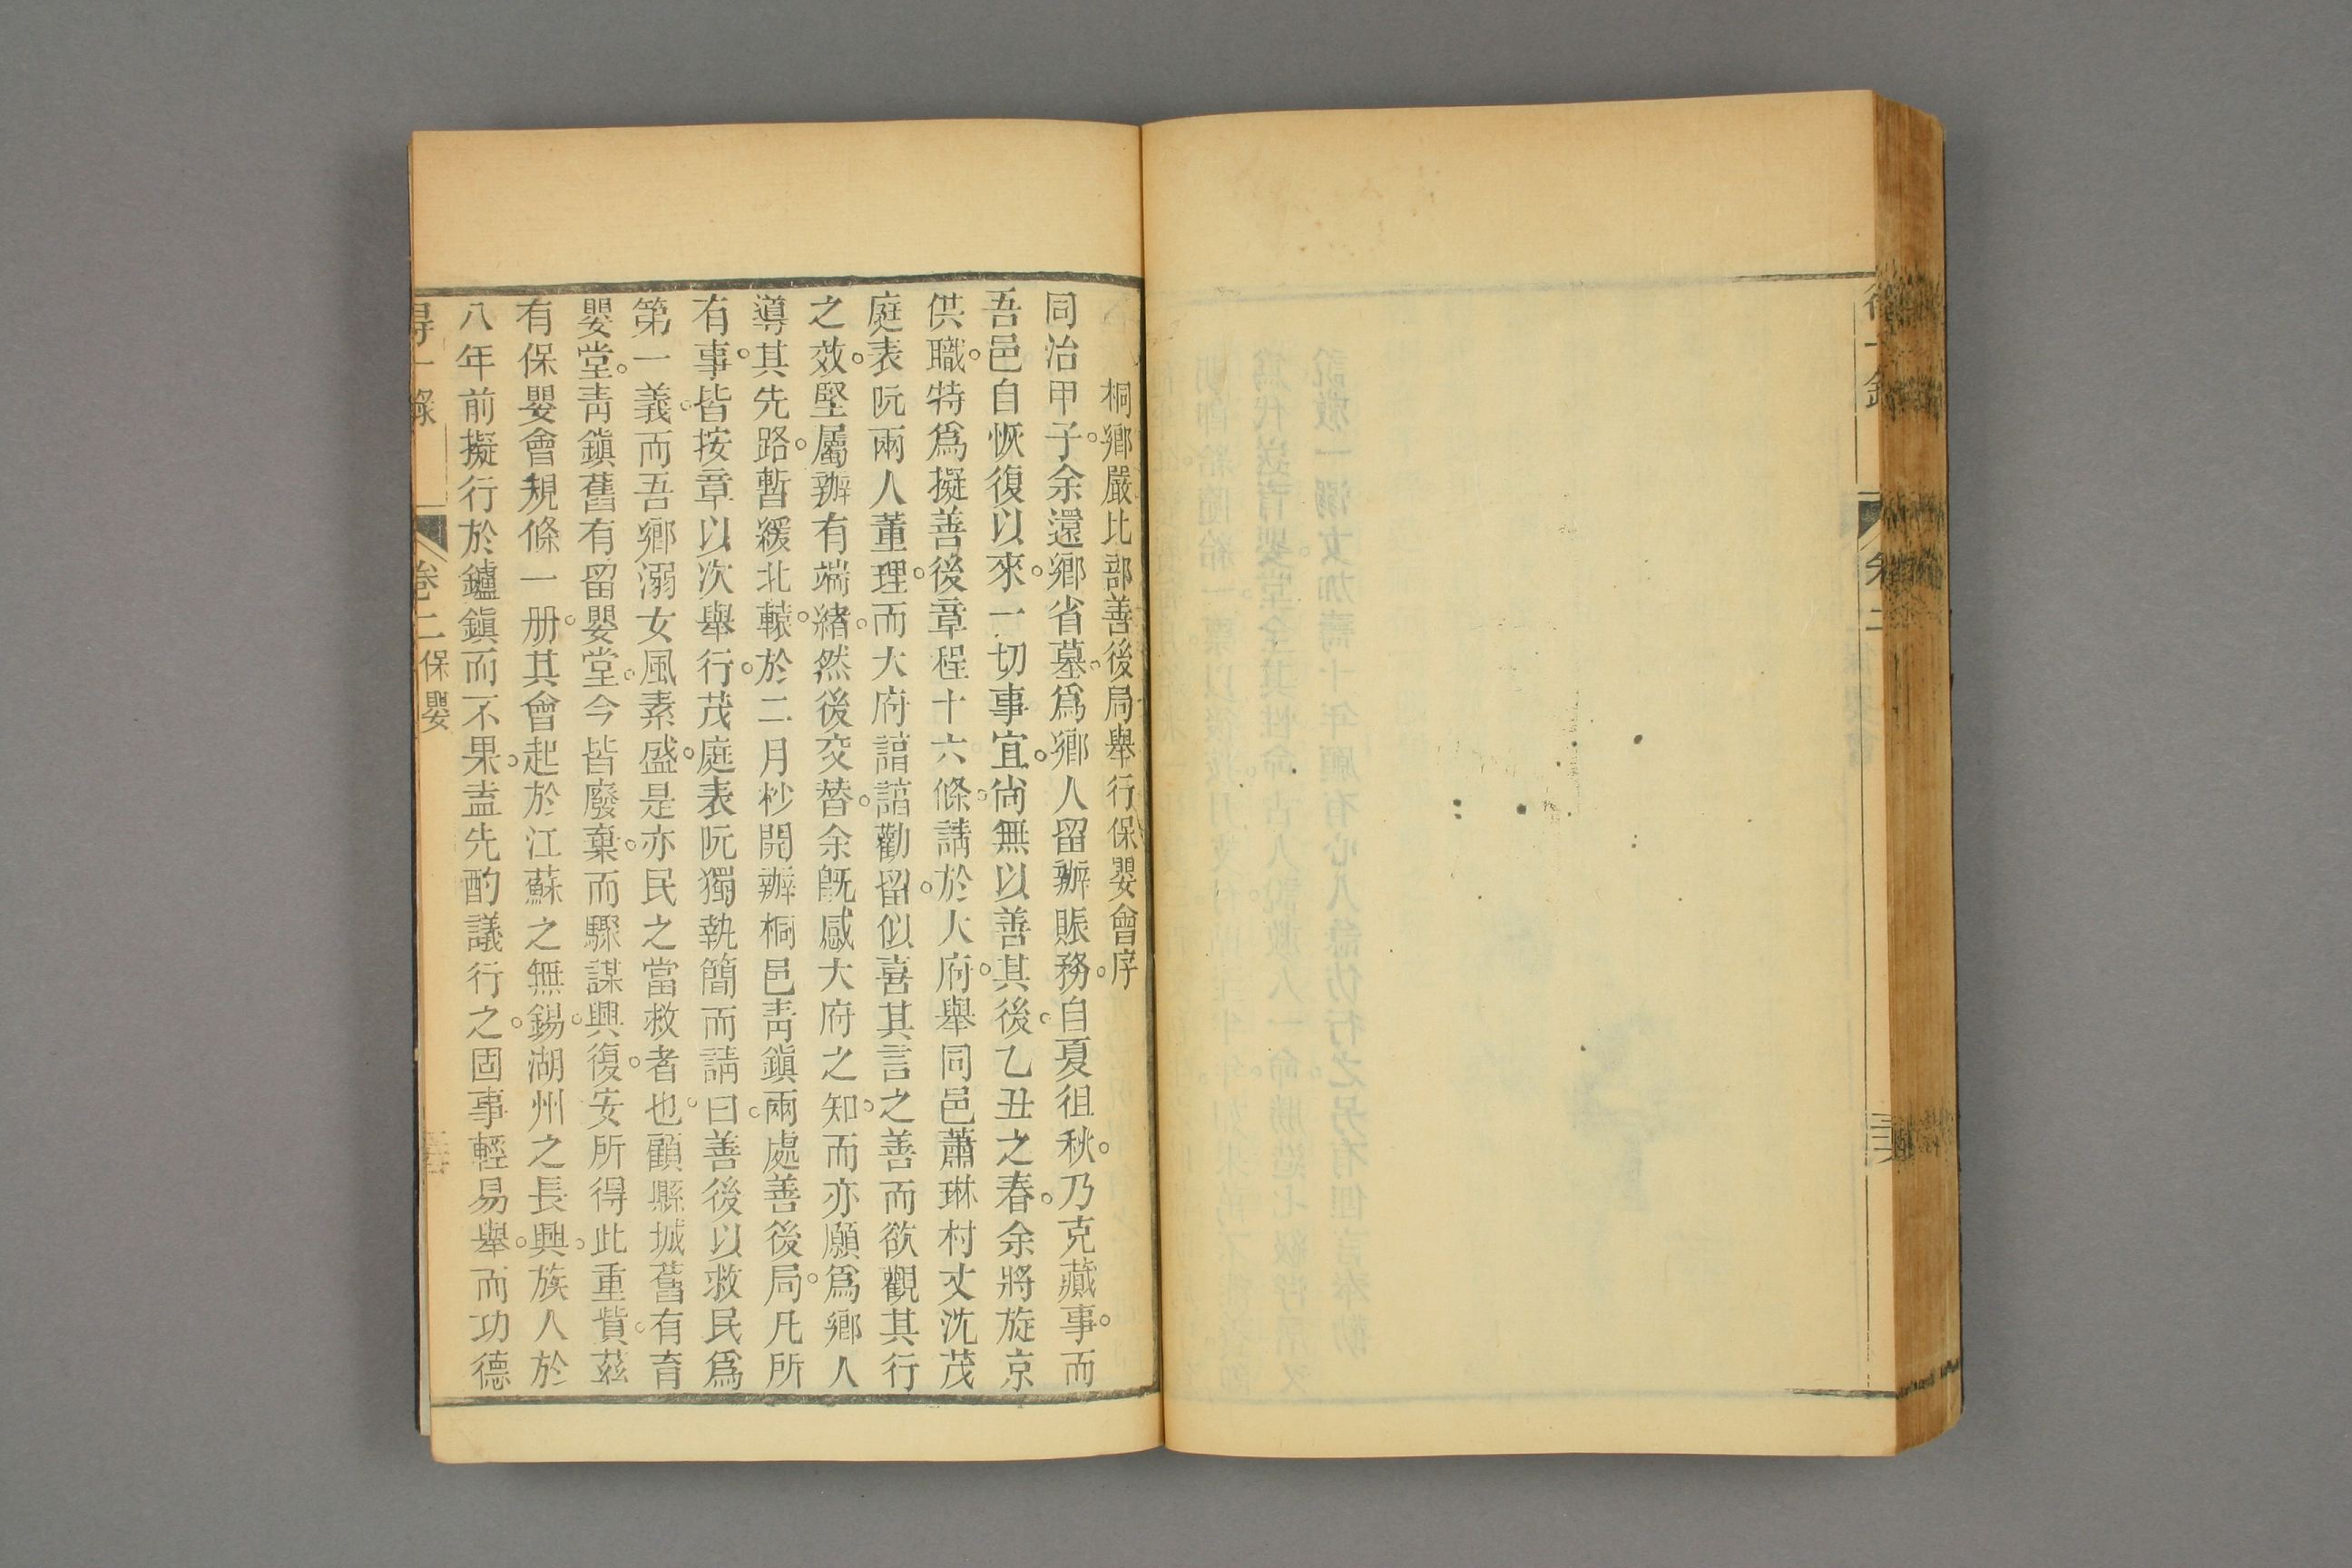 桐鄉嚴比部善後局舉行保嬰會序
同治甲子。余還鄉省墓。爲鄉人留辦賬務。自夏徂秋。乃克蕆事。而
吾邑自恢復以來。一切事宜。尙無以善其後。乙丑之春。余將旋京
供職。特爲擬善後章程十六條。請於大府。舉同邑蕭琳村丈沈茂
庭表阮兩人董理。而大府諳諳勸留。似喜其言之善而欲觀其行
之效。堅屬辦有端緒。然後交替。余旣感大府之知。而亦願爲鄉人
導其先路。暫緩北轅。於二月杪開辦桐邑靑鎭兩處善後局。凡所
有事。皆按章以次舉行。茂庭表阮獨執簡而請曰。善後以救民爲
第一義。而吾鄉溺女風素盛。是亦民之當救者也。顧縣城舊有育
嬰堂。靑鎭舊有留嬰堂。今皆廢棄。而驟謀興復。安所得此重貲。茲
有保嬰會規條一册。其會起於江蘇之無錫。湖州之長興。族人於
八年前擬行於鑪鎭而不果。盍先酌議行之。固事輕易舉。而功德
得一錄
卷二
保嬰